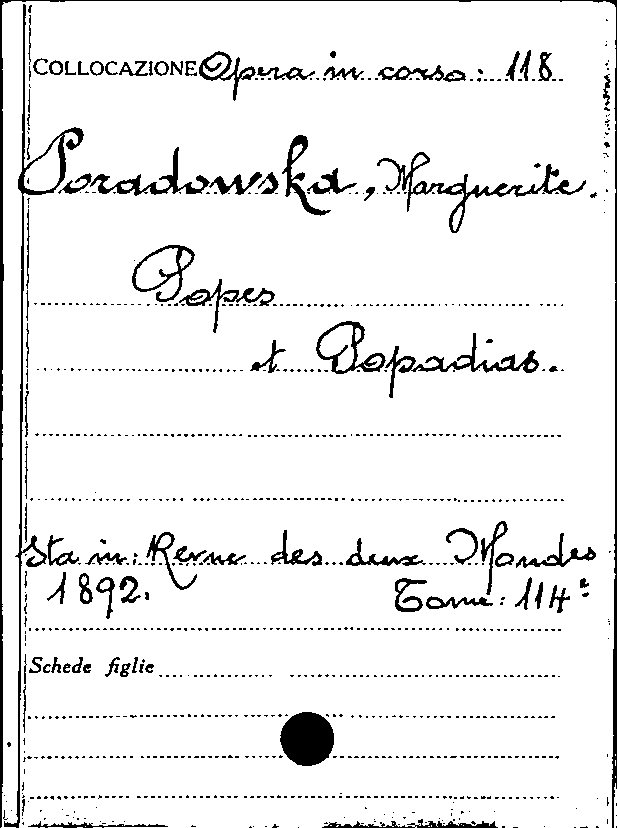 COLLOCAZIONE Opera in corso: 118
Poradowska, Marguerite.
Popes
et Popadias.
Sta in: Revue des deux Mondes
1892. Tome: 114e
Schede figlie